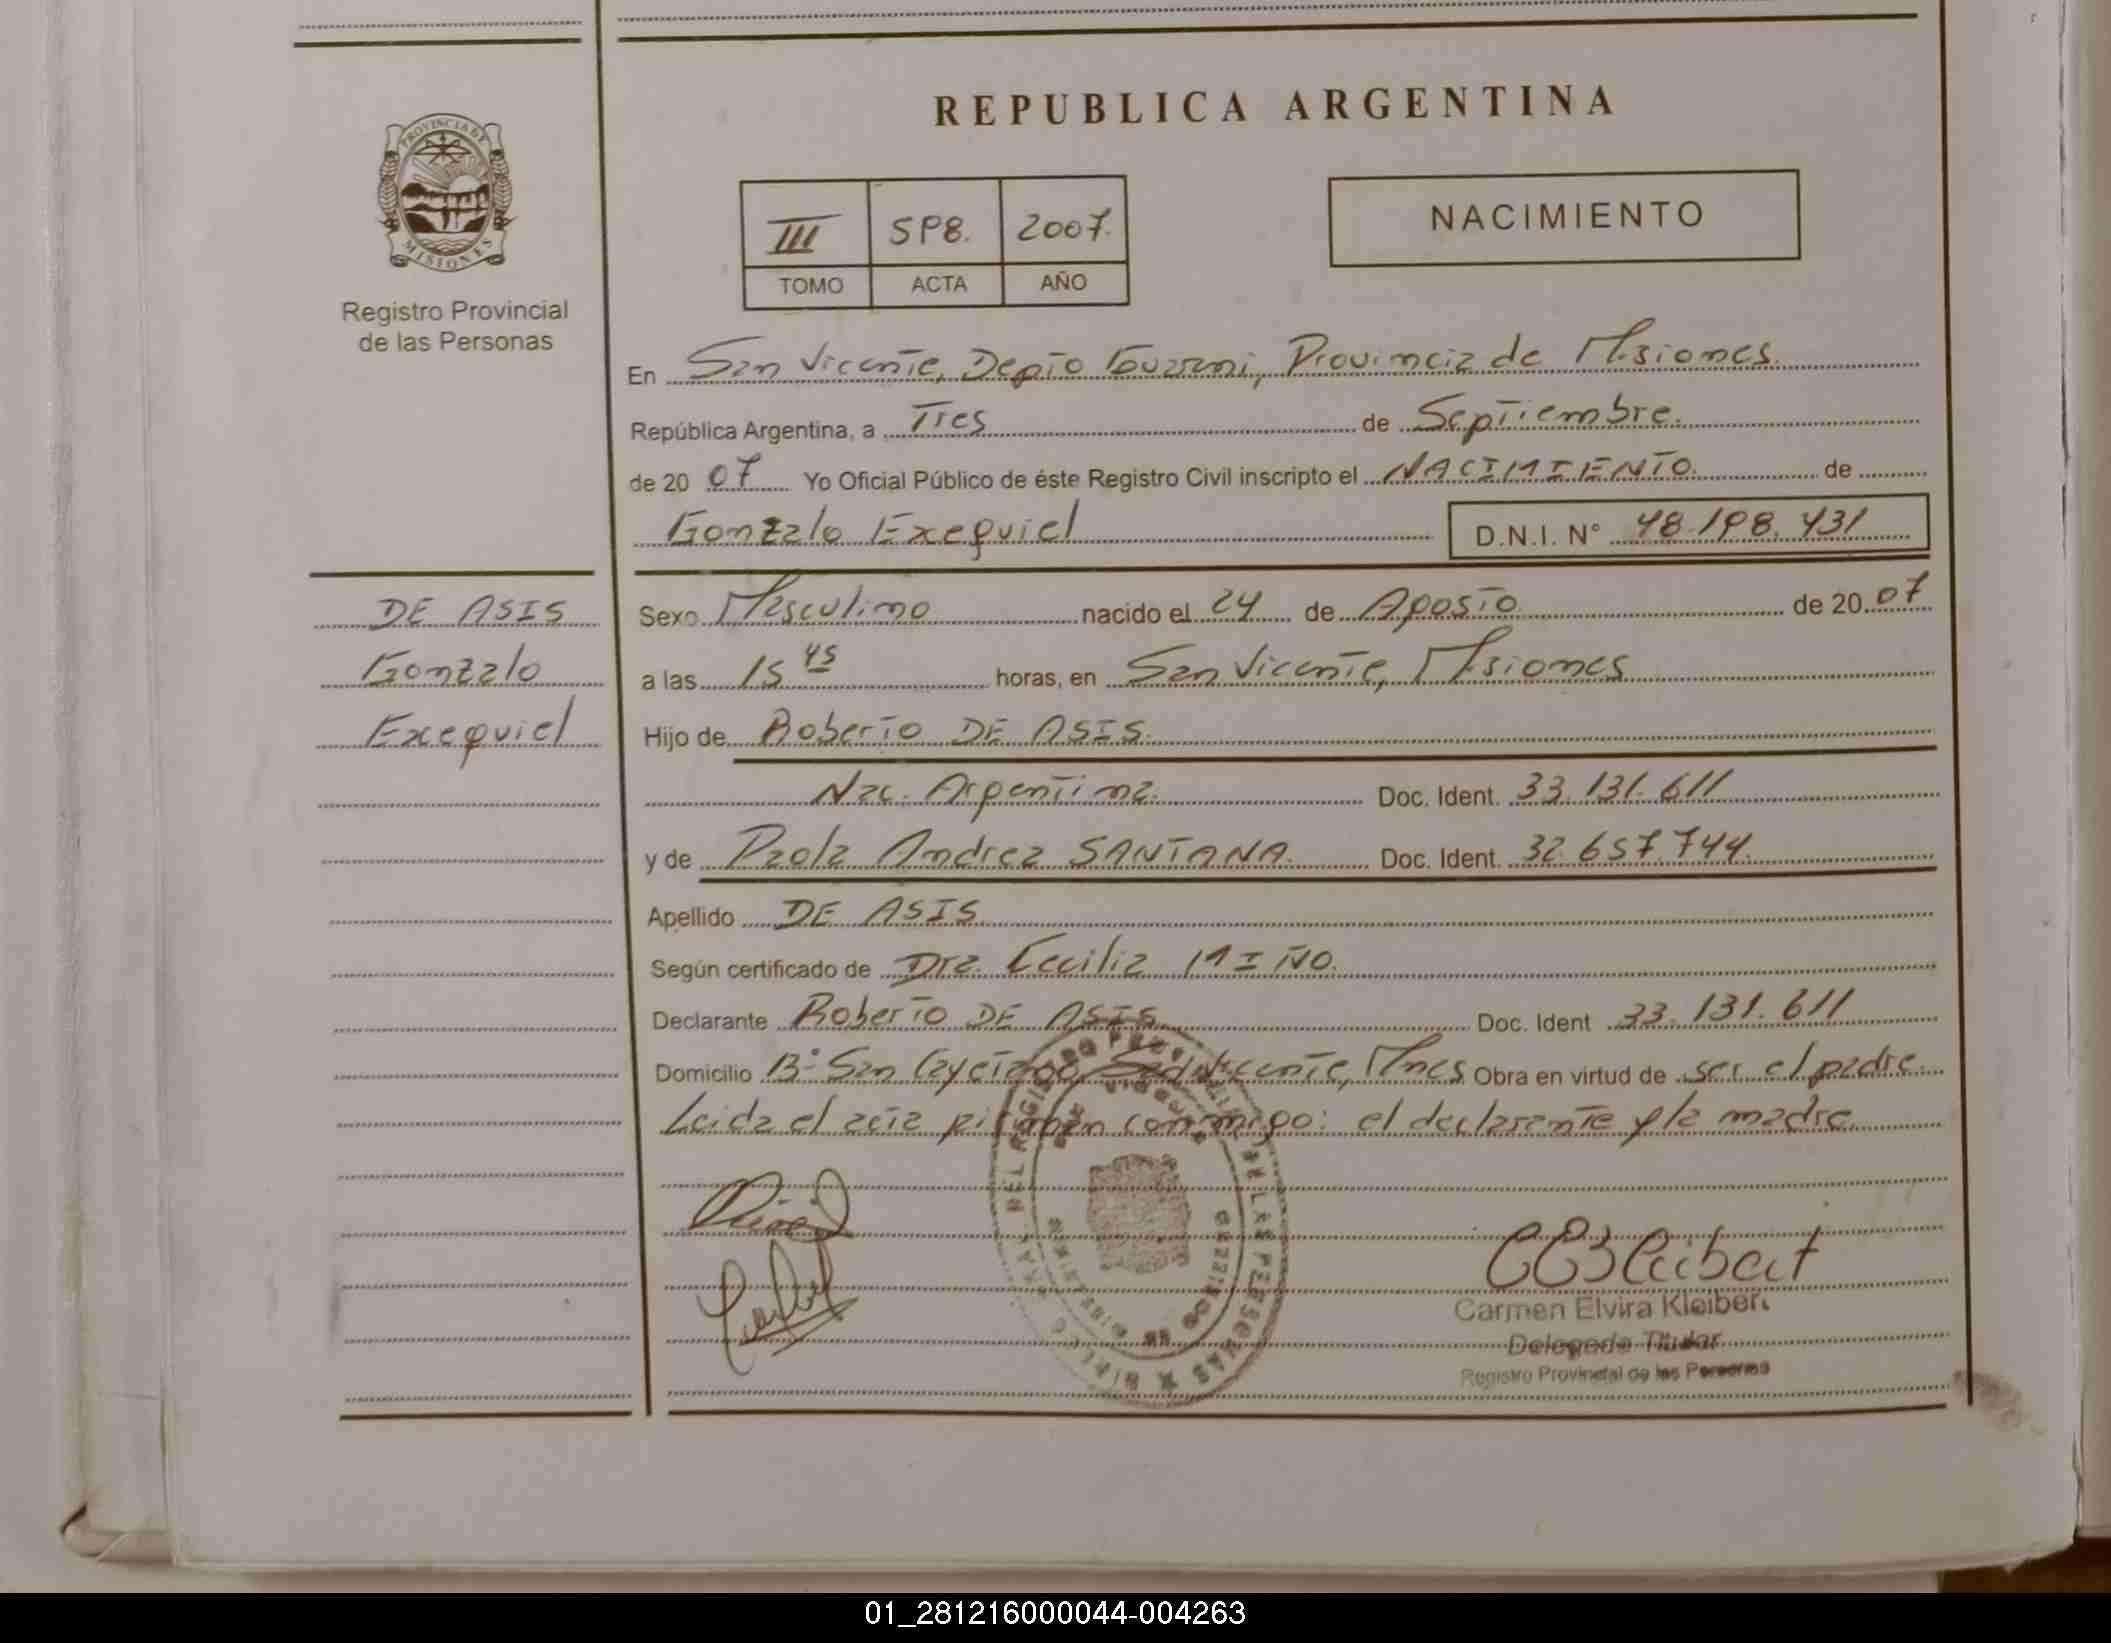 REPUBLICA ARGENTINA
PROVINCIA DE MISIONES
Registro Provincial
de las Personas
III 598. 2007.
TOMO ACTA AÑO
NACIMIENTO
En San Vicente, Depto Guarani, Provincia de Misiones.
República Argentina, a Tres de Septiembre.
de 20 07 Yo Oficial Público de éste Registro Civil inscripto el NACIMIENTO. de
Gonzalo Exequiel D.N.I. N° 48.198.431
DE ASIS
Gonzalo
Exequiel
Sexo Masculino nacido el 24 de Agosto de 20 07
a las 15 45 horas, en San Vicente, Misiones
Hijo de Roberto DE ASIS.
Nac. Argentina. Doc. Ident. 33.131.611
y de Paola Andrea SANTANA. Doc. Ident. 32.657.744.
Apellido DE ASIS
Según certificado de Dra. Cecilia MIÑO.
Declarante Roberto DE ASIS Doc. Ident 33.131.611
Domicilio B° San Cayetano, San Vicente, Mnes Obra en virtud de ser el padre.
Leida el acta firman conmigo: el declarante y la madre.
Carmen Elvira Kleibert
Delegada Titular
Registro Provincial de las Personas
01_281216000044-004263